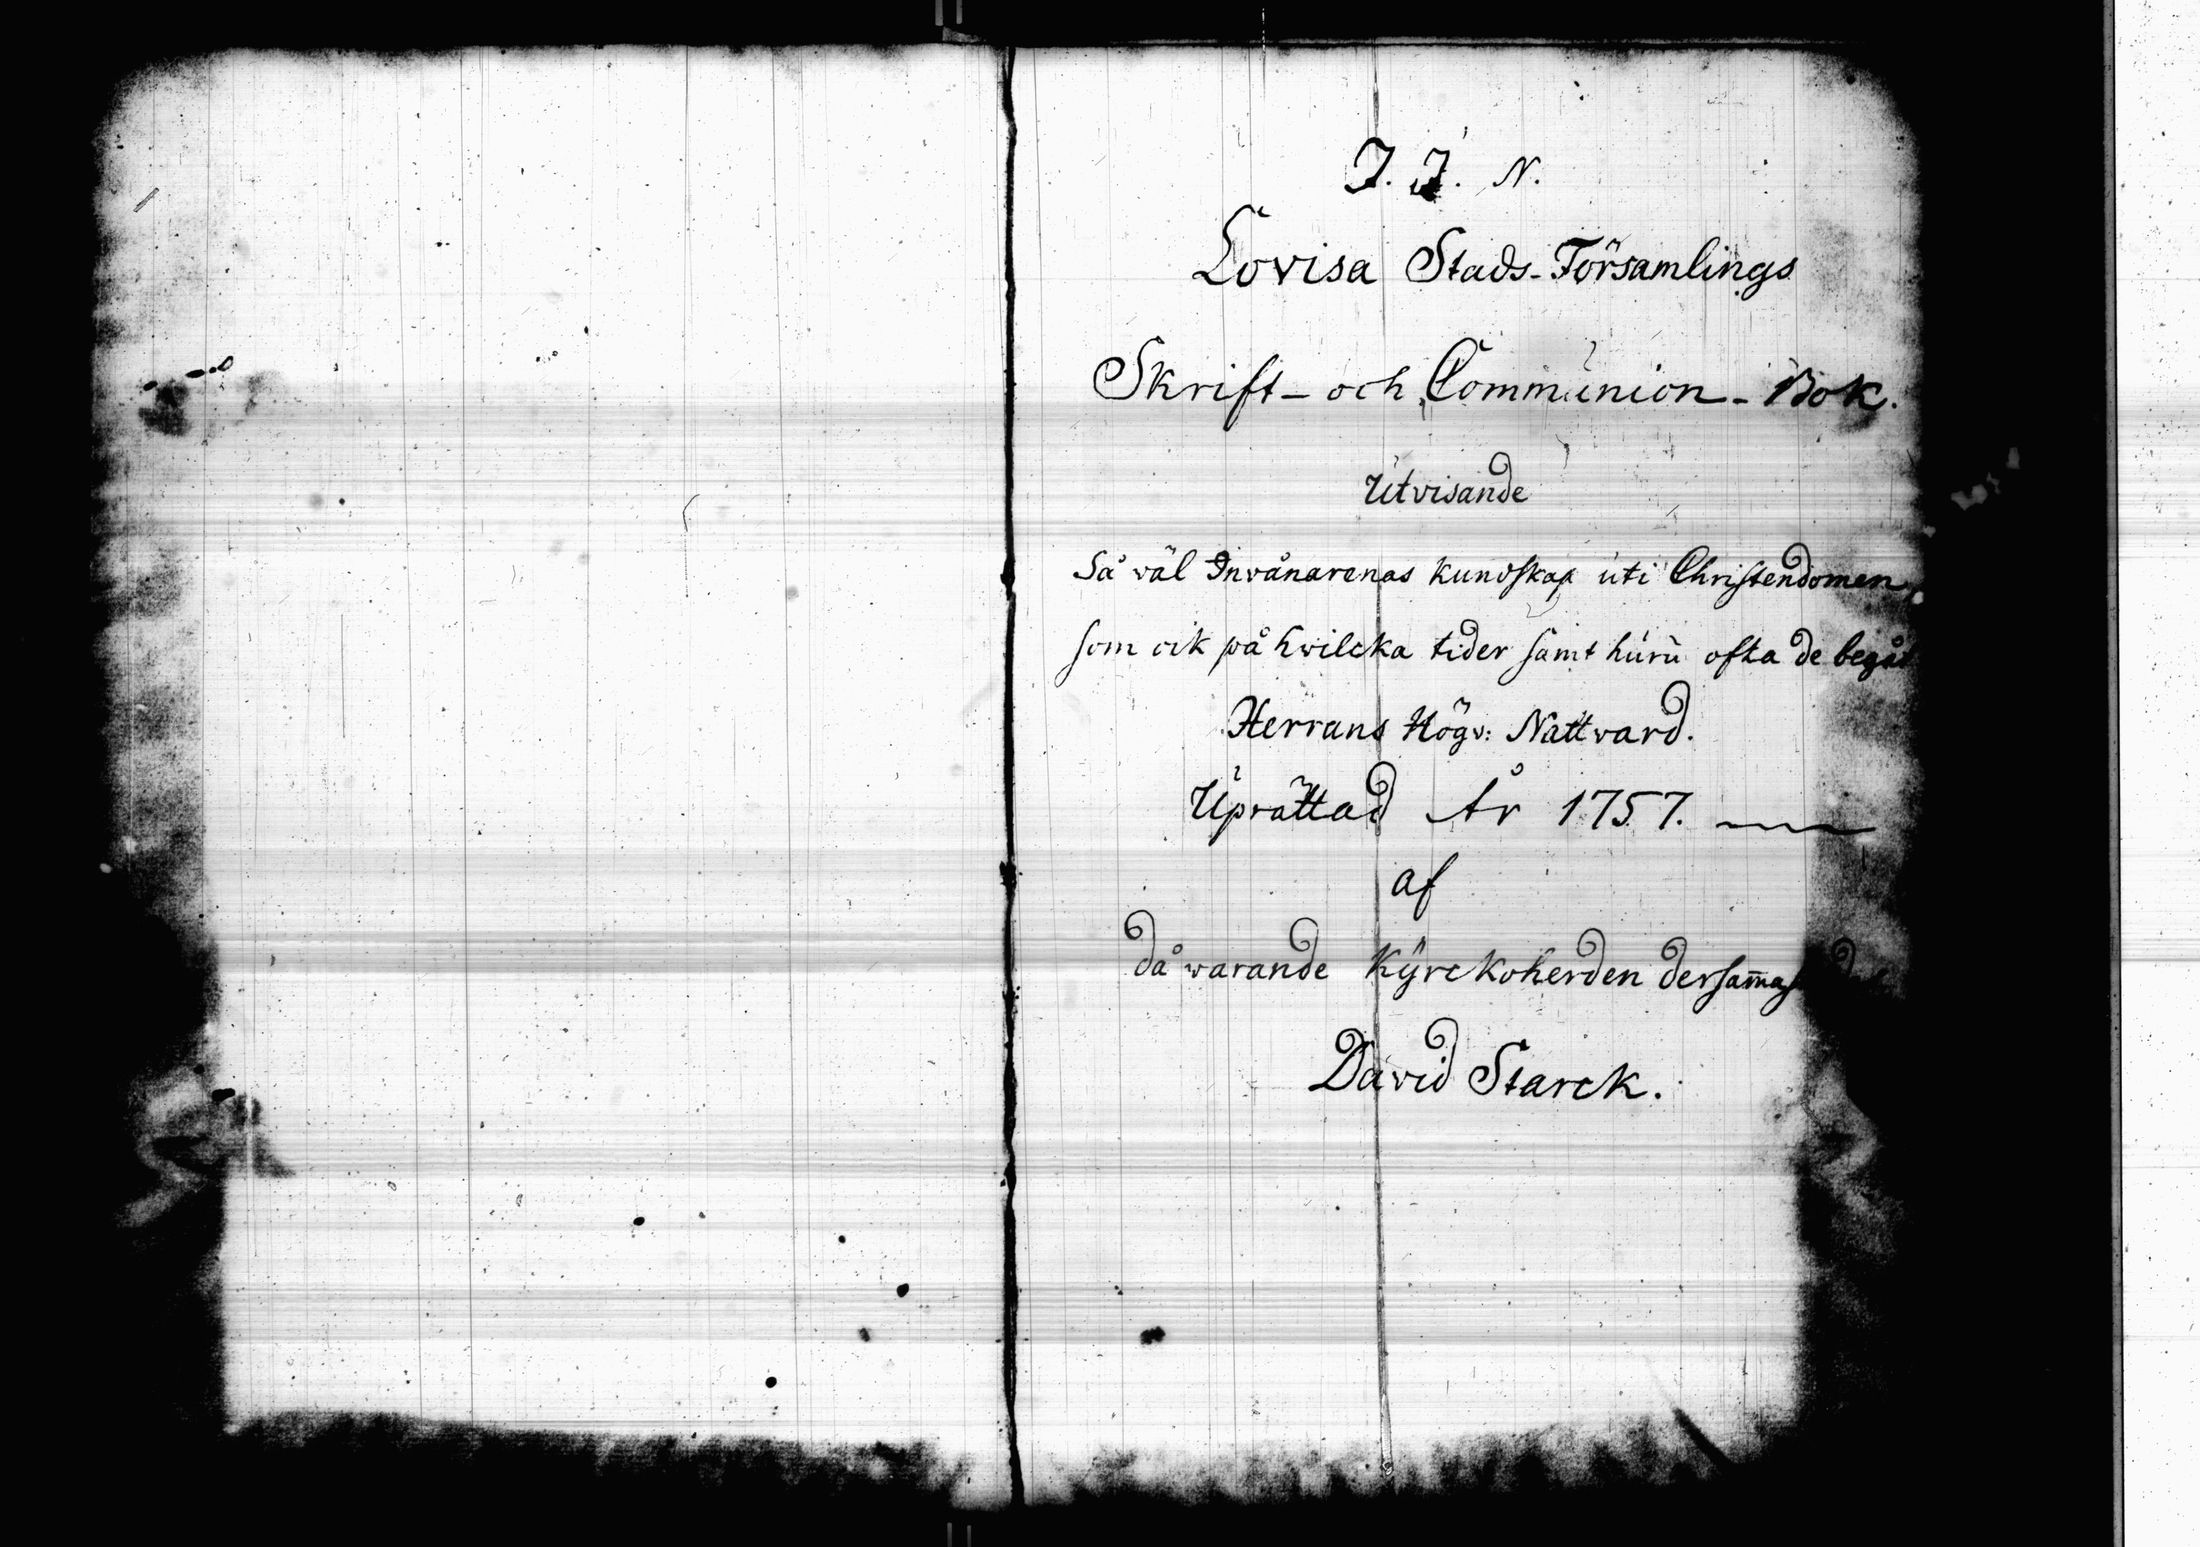 J. J. N.
Lovisa Stads-Församlings
Skrift- och Communion-Bok.
Utvisande
Så väl Invånarenas kundskap uti Christendomen,
som ock på hwilcka tider samt huru ofta de begåt
Herrans Högv: Nattvard.
Uprättad År 1757.
af
då warande Kÿrckoherden
David Starck.